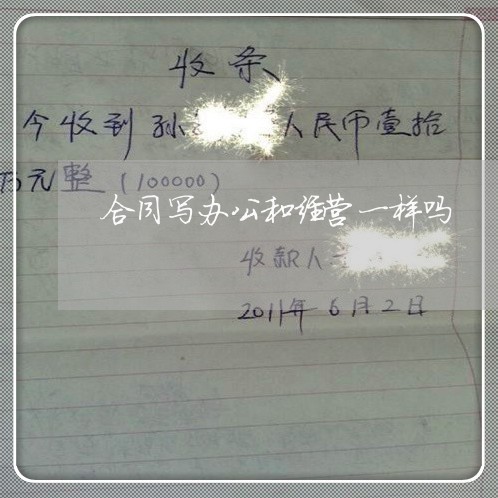 收条
今收到孙 人民币壹拾
万元整(100000)
合同写办公和经营一样吗
收款人
2011年6月2日